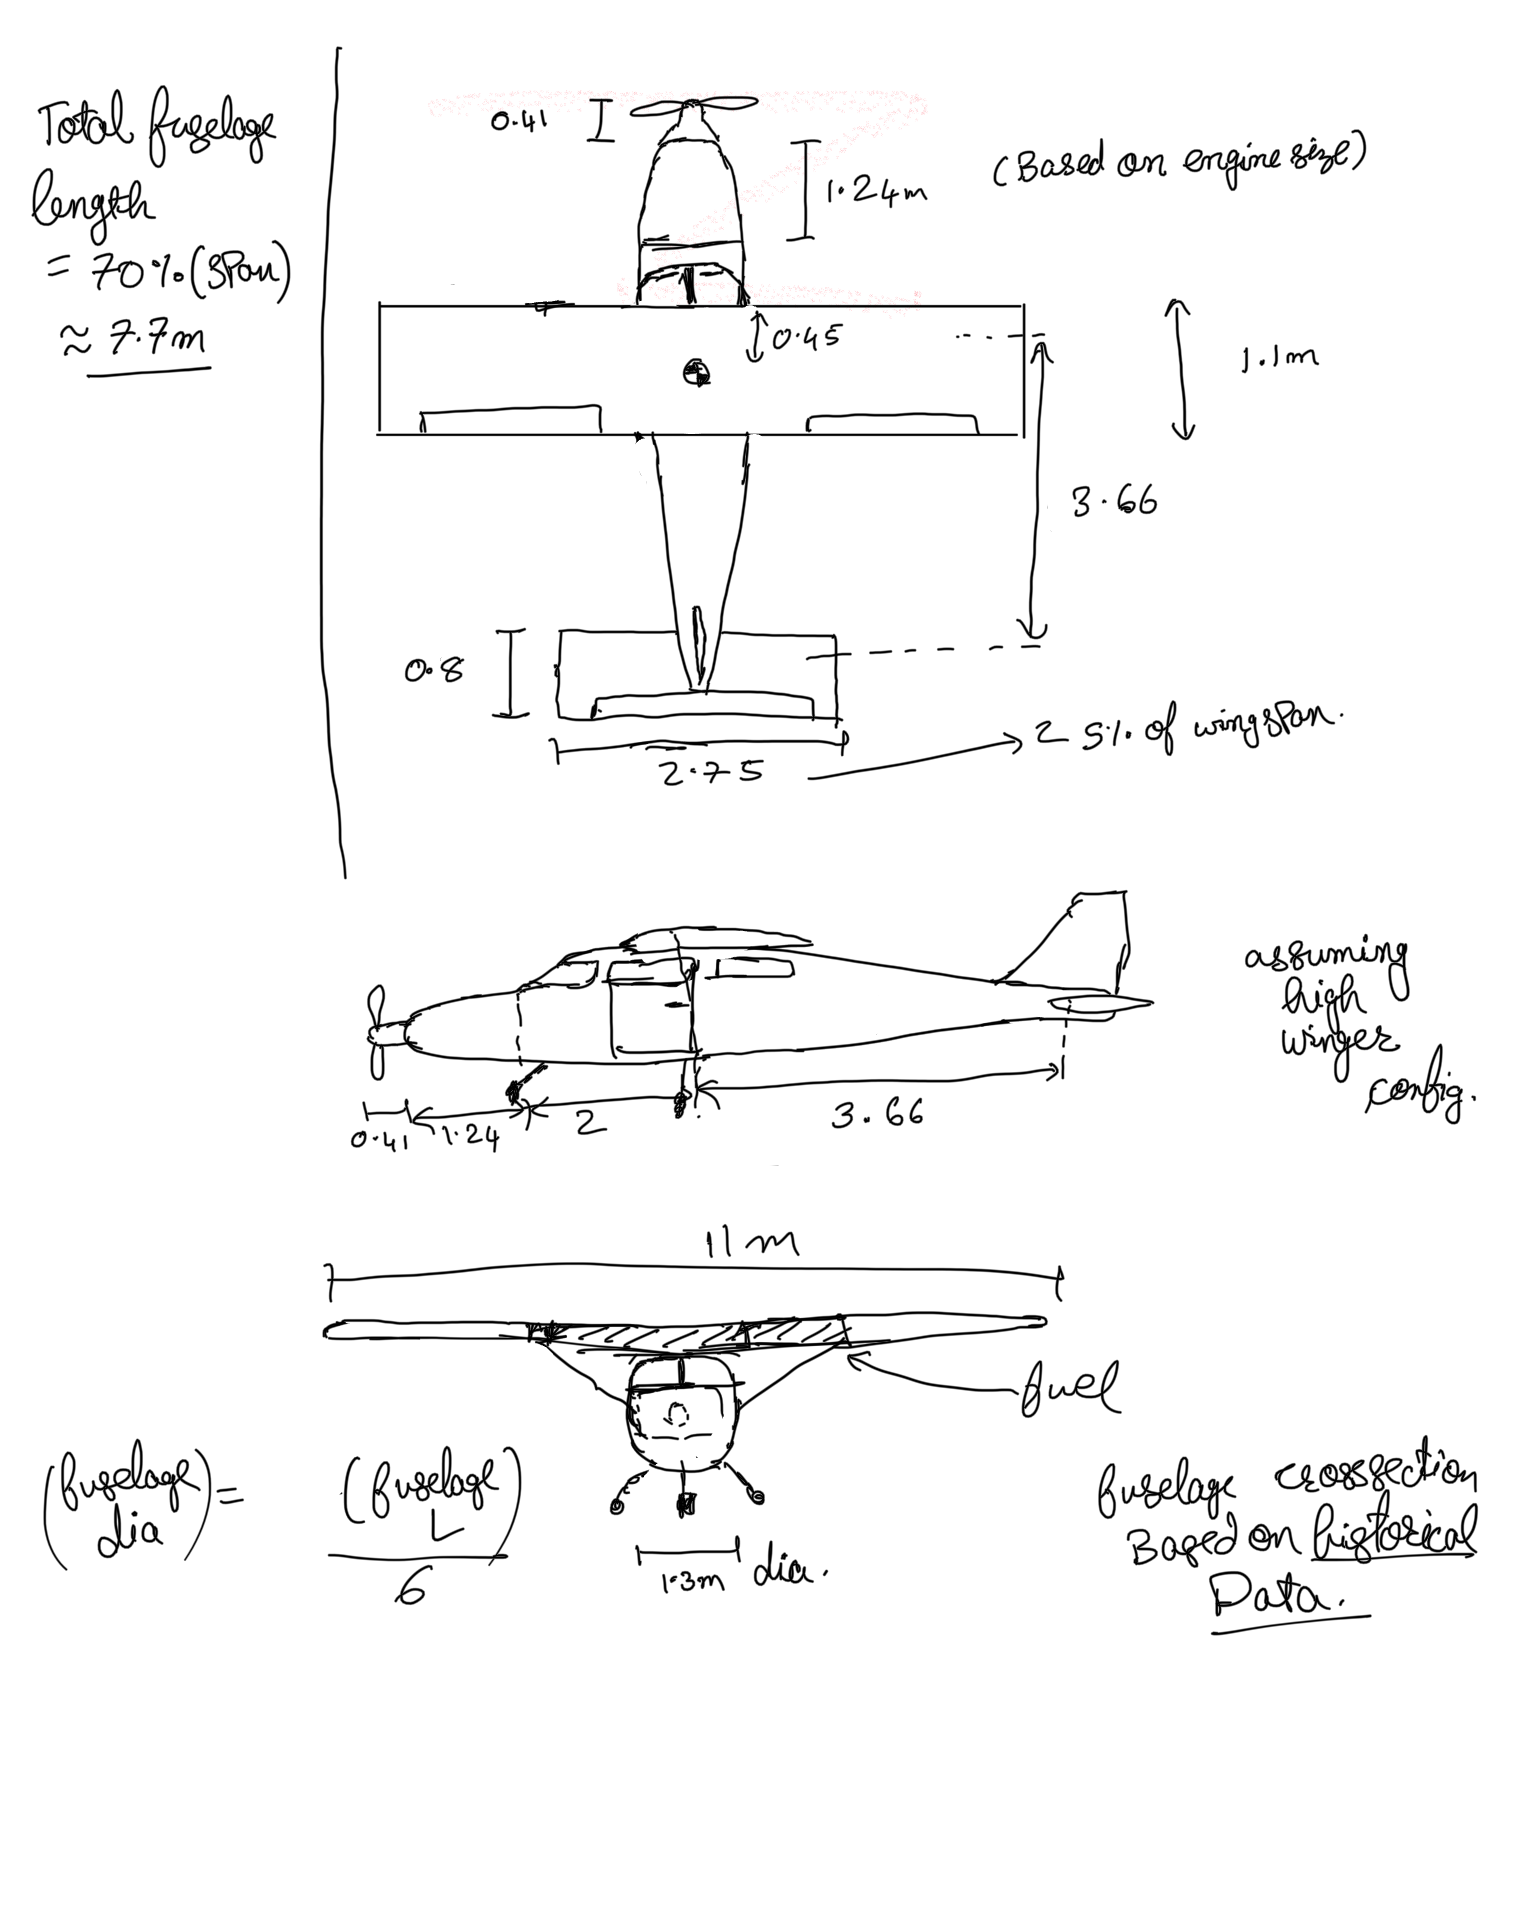 Total fuselage
length
= 70%(span)
≈ 7.7m
0.41
1.24m
(Based on engine size)
0.45
1.1m
3.66
0.8
2.75
25% of wingspan.
assuming
high
winger
config.
0.41
1.24
2
3.66
11 m
fuel
(fuselage dia) = (fuselage L)
6
1.3m dia.
fuselage crossection
Based on historical
Data.